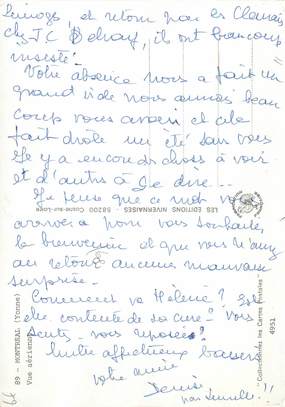 Limoges, et retour par les Clamais
chez J.C Delnay, ils ont beaucoup
insisté!
Votre absence nous a fait un
grand vide nous aimons beau
coup vous avoir et cela
fait drôle un été sans vous
Il y a encore des choses à voir
et d'autres à se dire...
Je pense que ce mot
arrivera pour vous souhaiter
la bienvenue et que vous n'aurez
au retour aucune mauvaise
surprise.
Comment va Hélène? Est
elle contente de sa cure? Vous
sentez-vous reposés?
affectueux baisers
votre amie
Denise
LES EDITIONS NIVERNAISES 58200 Cosne-sur-Loire
89 - MONTREAL (Yonne)
Vue aérienne
"Collectionnez les Cartes Postales"
4951